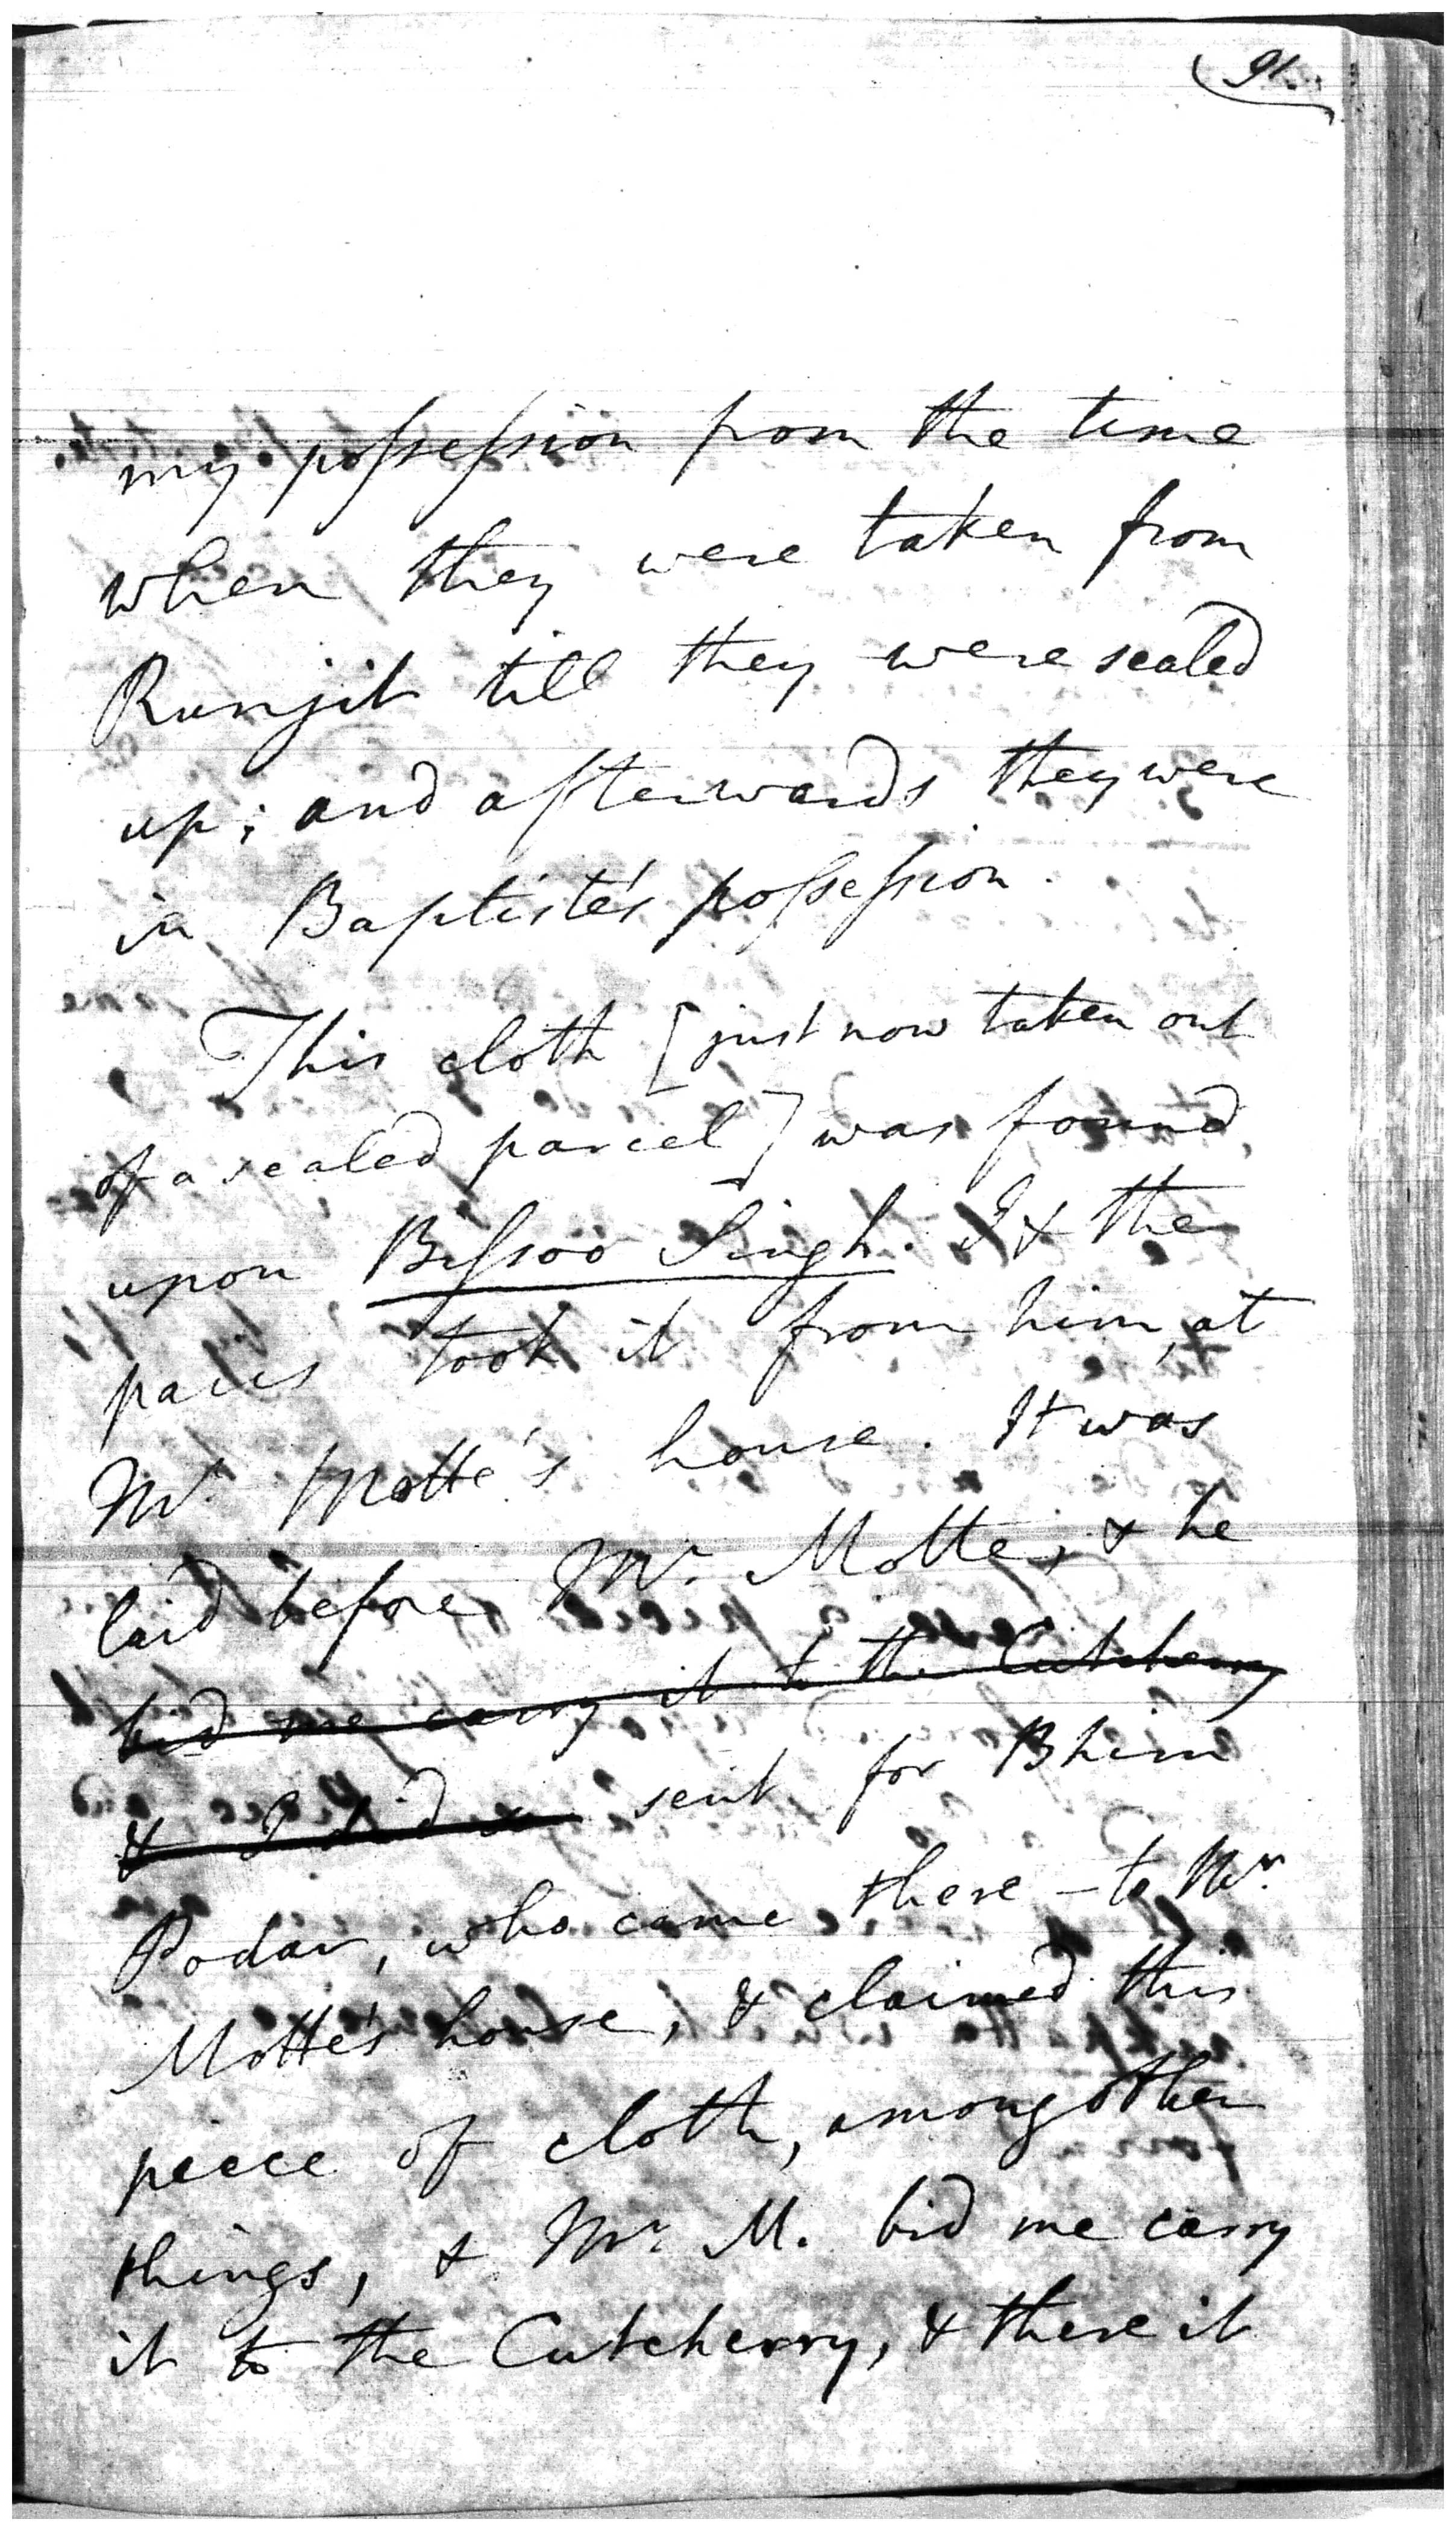 91.
my possession from the time
when they were taken from
Runjit till they were sealed
up; and afterwards they were
in Baptiste's possession.
This cloth [just now taken out
of a sealed parcel] was found
upon Bissoo Singh. I & the
paies took it from him, at
Mr. Motte's house. It was
laid before Mr. Motte, & he
bid me carry it to the Cutcherry
& I did so sent for Bhim
Podar, who came there - to Mr.
Motte's house, & claimed this
peece of cloth, among other
things, & Mr. M. bid me carry
it to the Cutcherry, & there it